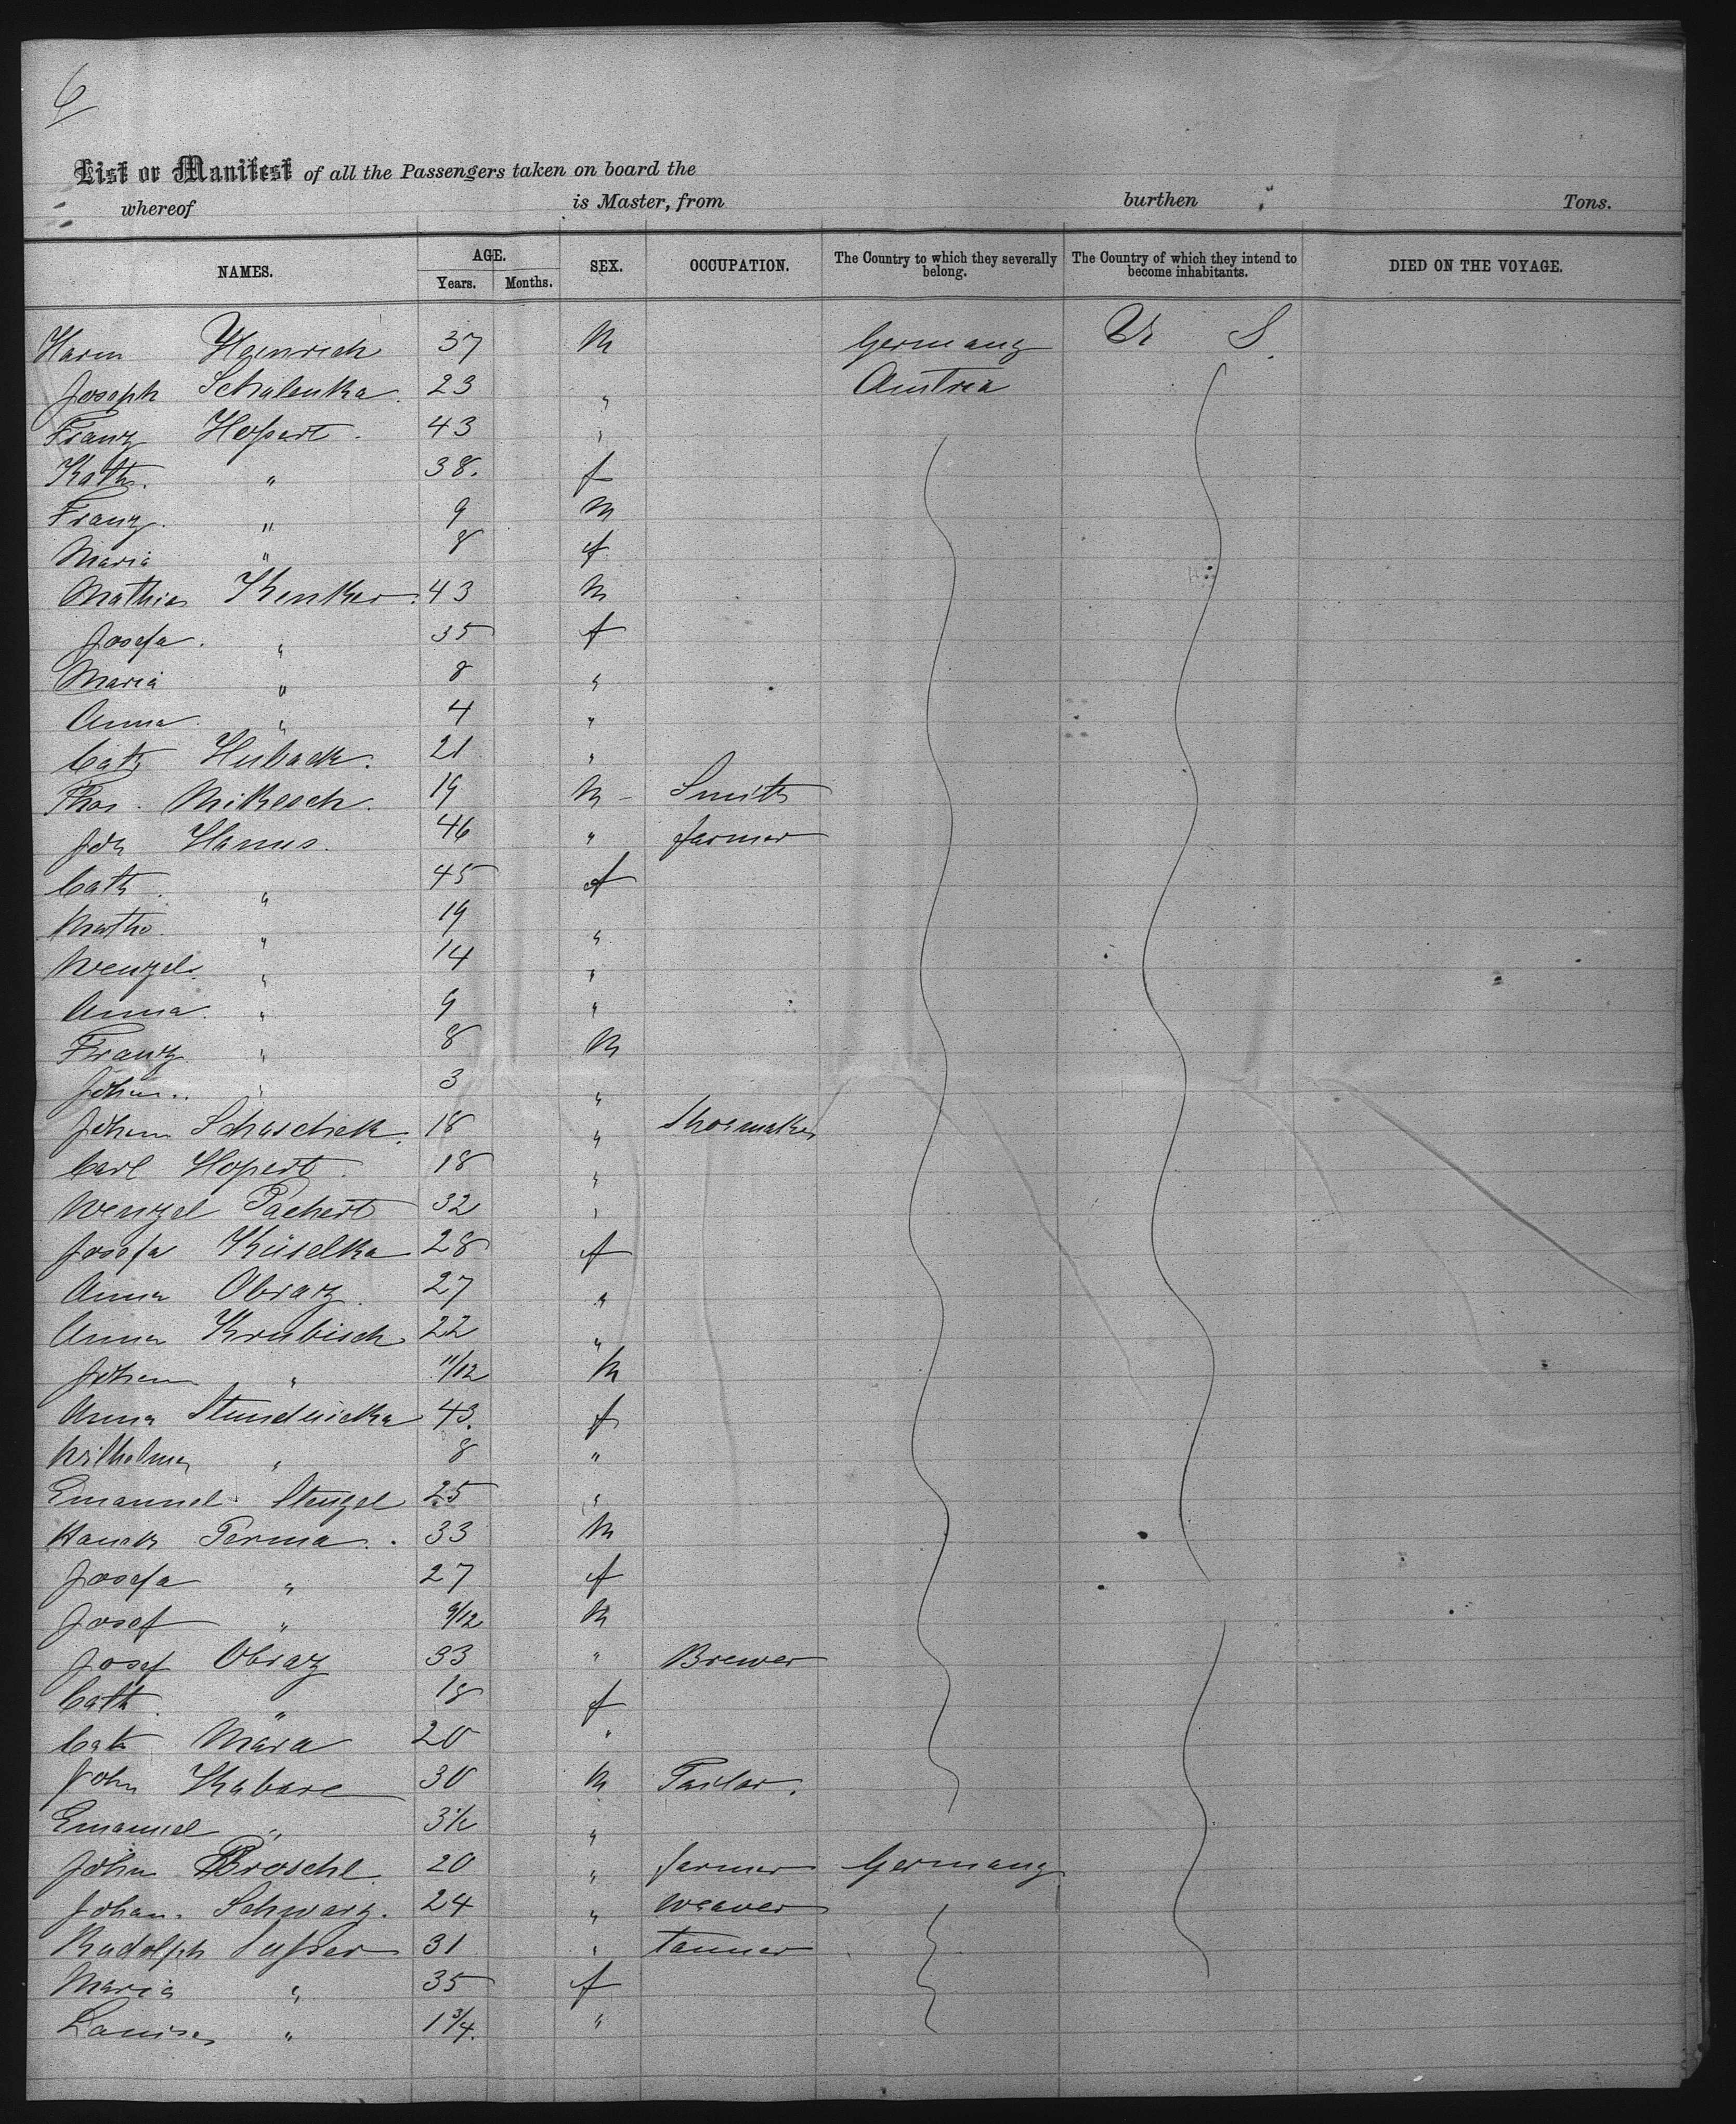 6
List or Manifest of all the Passengers taken on board the
whereof is Master, from burthen Tons.
NAMES. AGE. SEX. OCCUPATION. The Country to which they severally belong. The Country of which they intend to become inhabitants. DIED ON THE VOYAGE.
Years. Months.
Harm Heinrich 37 M Germany U S.
Joseph Schalenka. 23 " Austria
Franz Hopert. 43 "
Kath. " 38. f
Franz. " 9 M
Maria " 8 f
Mathias Kenker. 43 M
Josefa. " 35 f
Maria " 8 "
Anna. " 4 "
Cath Huback. 21 "
Thos. Mikesch. 19 M Smith
Joh Hanus. 46 " farmer
Cath. " 45 f
Math. " 19 "
Wenzel. " 14 "
Anna. " 9 "
Franz " 8 M
Johan. " 3 "
Johan Schaschek. 18 " Shoemaker
Carl Hopert. 18 "
Wenzel Pachert 32 "
Josefa Kuselka 28 f
Anna Obraz. 27 "
Anna Krubisch 22 "
Johan " 11/12 M
Anna 43. f
Wilhelmn " 8 "
Emanuel Stengel 25 "
Perma. 33 M
Josefa " 27 f
Josef " 9/12 M
Josef Obraz 33 " Brewer
Cath. " 18 f
Cath Mara 20 "
John Skabare 30 M Tailor.
Emanuel " 3½ "
John Broschl. 20 " farmer Germany
Johan. Schwarz. 24 " weaver
Rudolph 31 " tanner
Maria " 35 f
Louise " 1¾. "